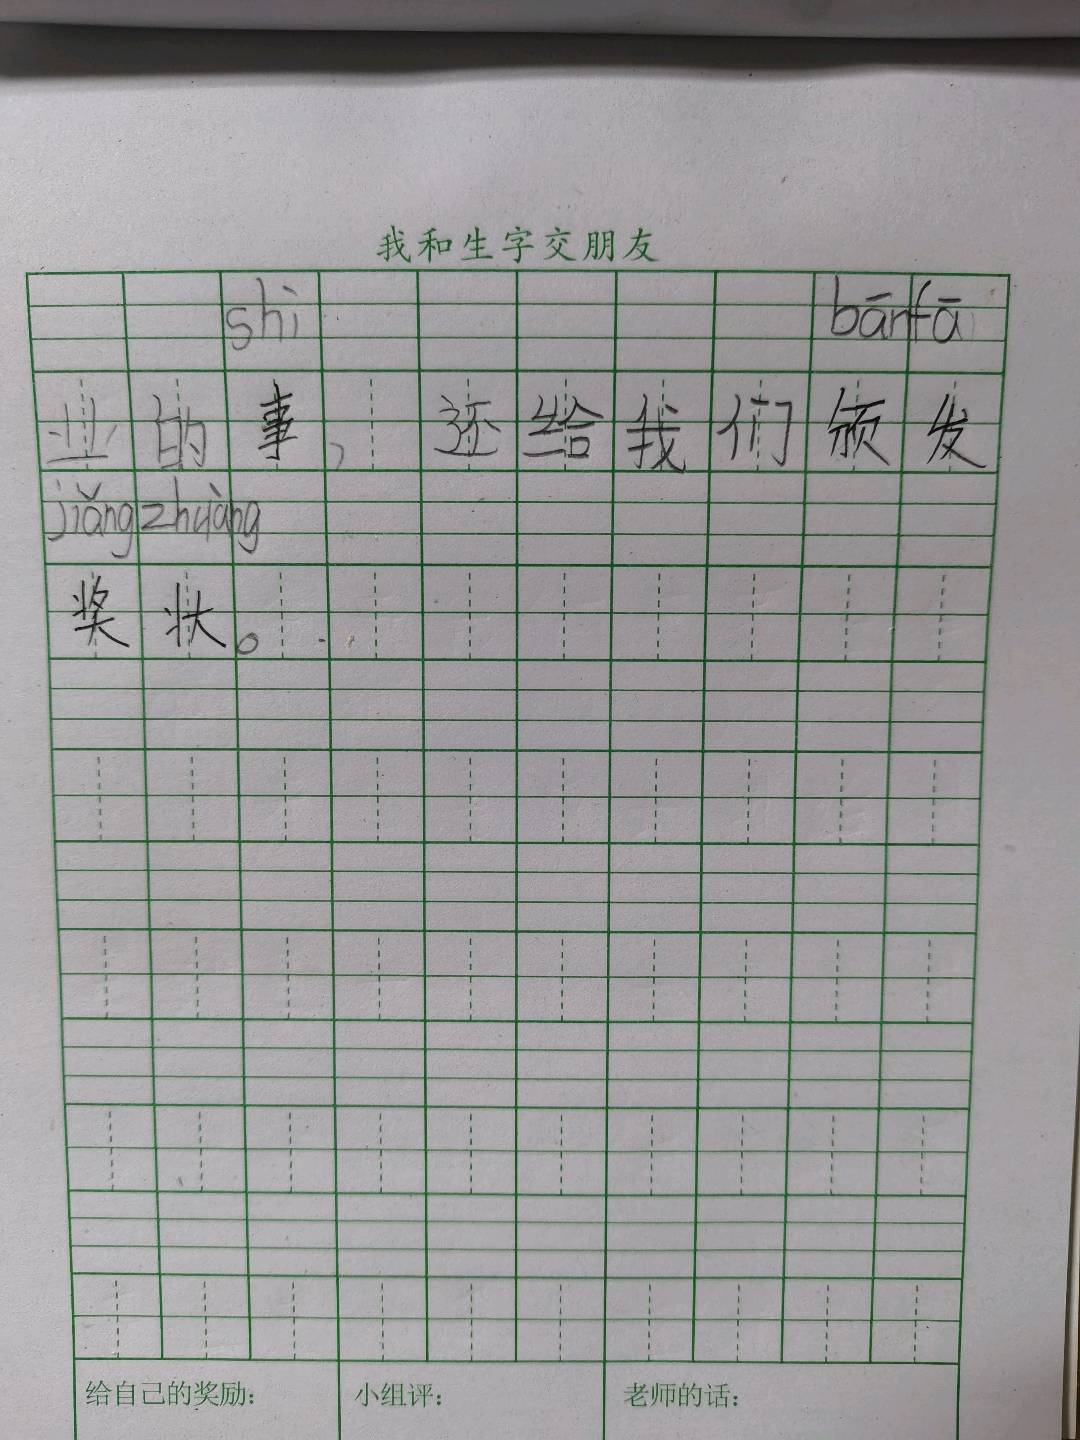 我和生字交朋友
shì bānfā
业的事，还给我们颁发
jiǎngzhuàng
奖状。
给自己的奖励： 小组评： 老师的话：